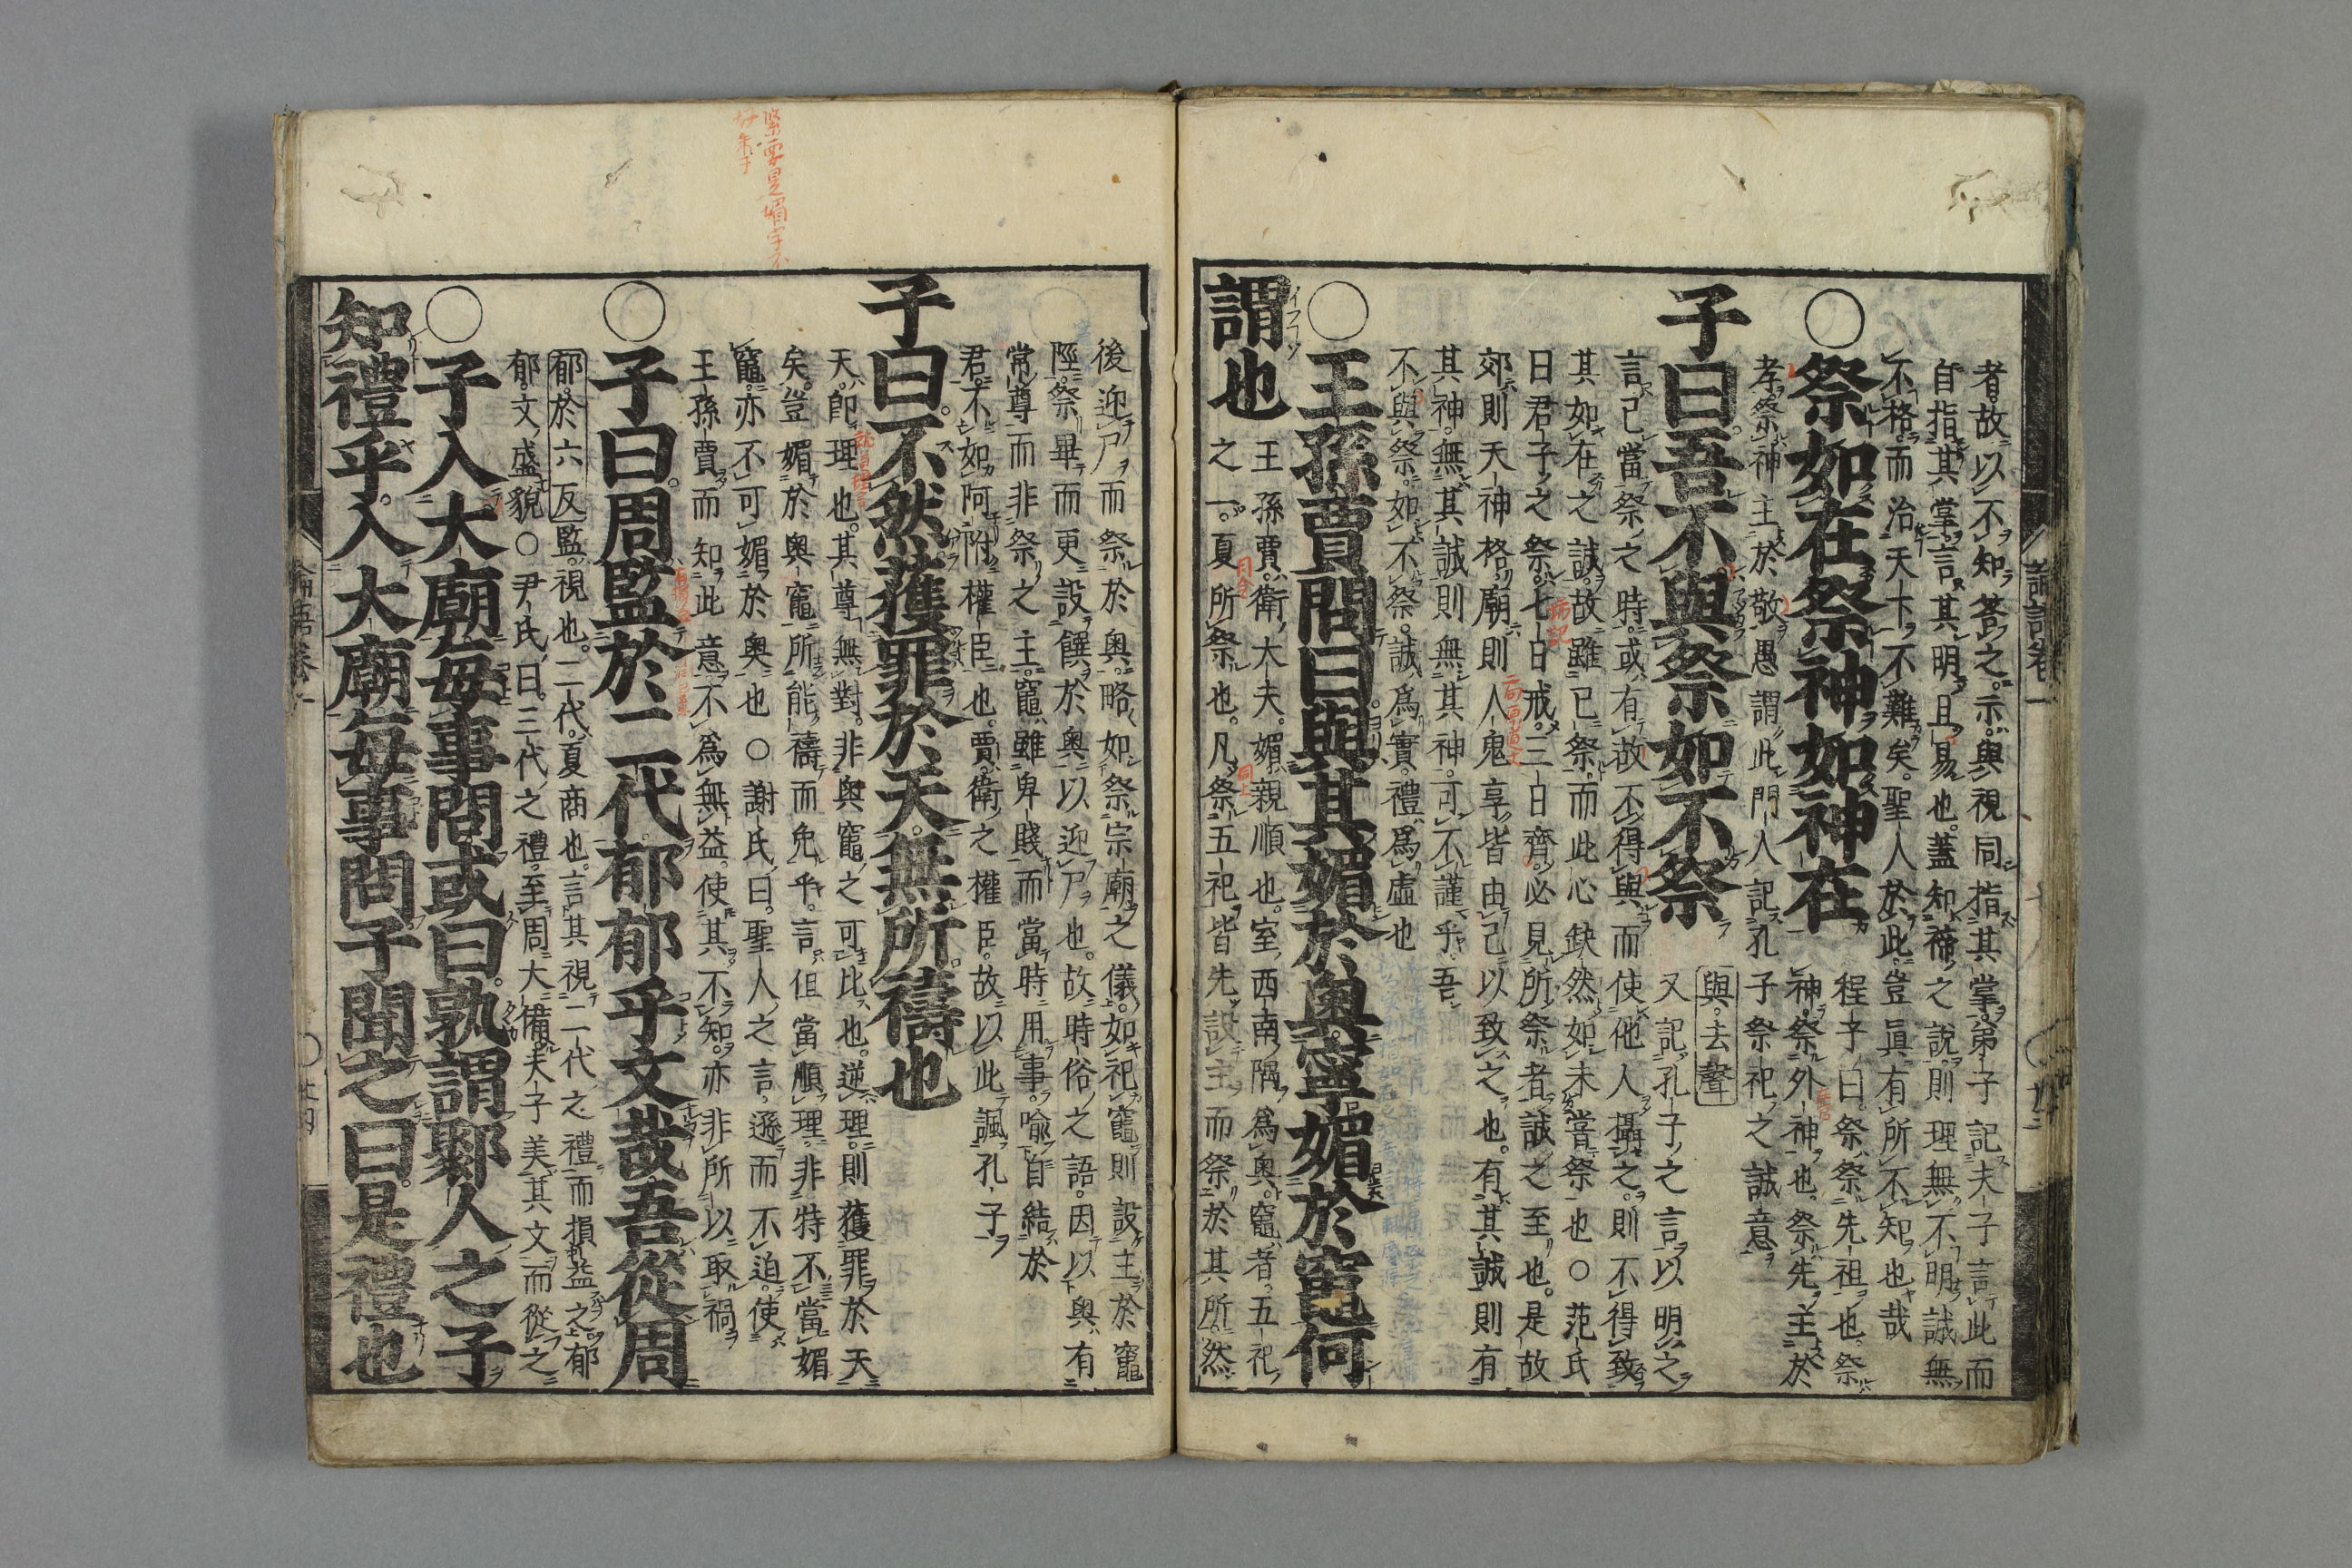 者。故以不知答之。示。與視同。指其掌。弟子記夫子言此而
自指其掌。言其明且易也。蓋知禘之說。則理無不明。誠無
不格。而治天下不難矣。聖人於此。豈眞有所不知也哉
○祭如在祭神如神在
程子曰。祭。祭先祖也。祭
神。祭外神也。祭先主於
孝。祭神主於敬。愚謂此門人記孔
子祭祀之誠意
子曰。吾不與祭如不祭
與。去聲
又記孔子之言以明之
言己當祭之時。或有故不得與。而使他人攝之。則不得致
其如在之誠。故雖已祭。而此心缺然。如未嘗祭也○范氏
曰君子之祭。七日戒。三日齊。必見所祭者。誠之至也。是故
郊則天神格。廟則人鬼享。皆由己以致之也。有其誠則有
其神。無其誠則無其神。可不謹乎。吾
不與祭。如不祭。誠爲實。禮爲虛也
○王孫賈問曰。與其媚於奧。寧媚於竈。何
謂也
王孫賈。衛大夫。媚。親順也。室西南隅爲奧。竈者。五祀
之一。夏所祭也。凡祭五祀。皆先設主。而祭於其所。然
後迎尸。而祭於奧。略如祭宗廟之儀。如祀竈。則設主於竈
陘。祭畢。而更設饌於奧。以迎尸也。故時俗之語。因以奧有
常尊。而非祭之主。竈雖卑賤。而當時用事。喻自結於
君。不如阿附權臣也。賈。衛之權臣。故以此諷孔子
子曰。不然。獲罪於天。無所禱也
天。卽理也。其尊無對。非奧竈之可比也。逆理。則獲罪於天
矣。豈媚於奧竈。所能禱而免乎。言但當順理。非特不當媚
竈。亦不可媚於奧也○謝氏曰。聖人之言。遜而不迫。使
王孫賈而知此意。不爲無益。使其不知。亦非所以取禍
○子曰。周監於二代。郁郁乎文哉。吾從周
郁。於六反
監。視也。二代。夏商也。言其視二代之禮而損益之。郁
郁。文盛貌○尹氏曰。三代之禮。至周大備。夫子美其文而從之
○子入大廟。每事問。或曰。孰謂鄹人之子
知禮乎。入大廟。每事問。子聞之曰。是禮也